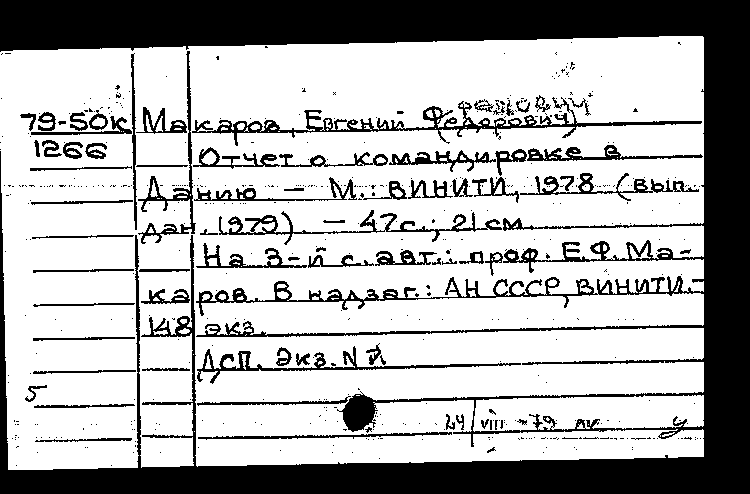 79-50к Макаров, Евгений Федорович
1266 Отчет о командировке в
Данию — М.: ВИНИТИ, 1978 (вып.
дан. 1979). — 47с.; 21 см.
На 3-й с. авт.: проф. Е.Ф. Ма-
каров. В надзаг.: АН СССР, ВИНИТИ.-
148 экз.
ДСП. Экз. N
5
24/VIII-79